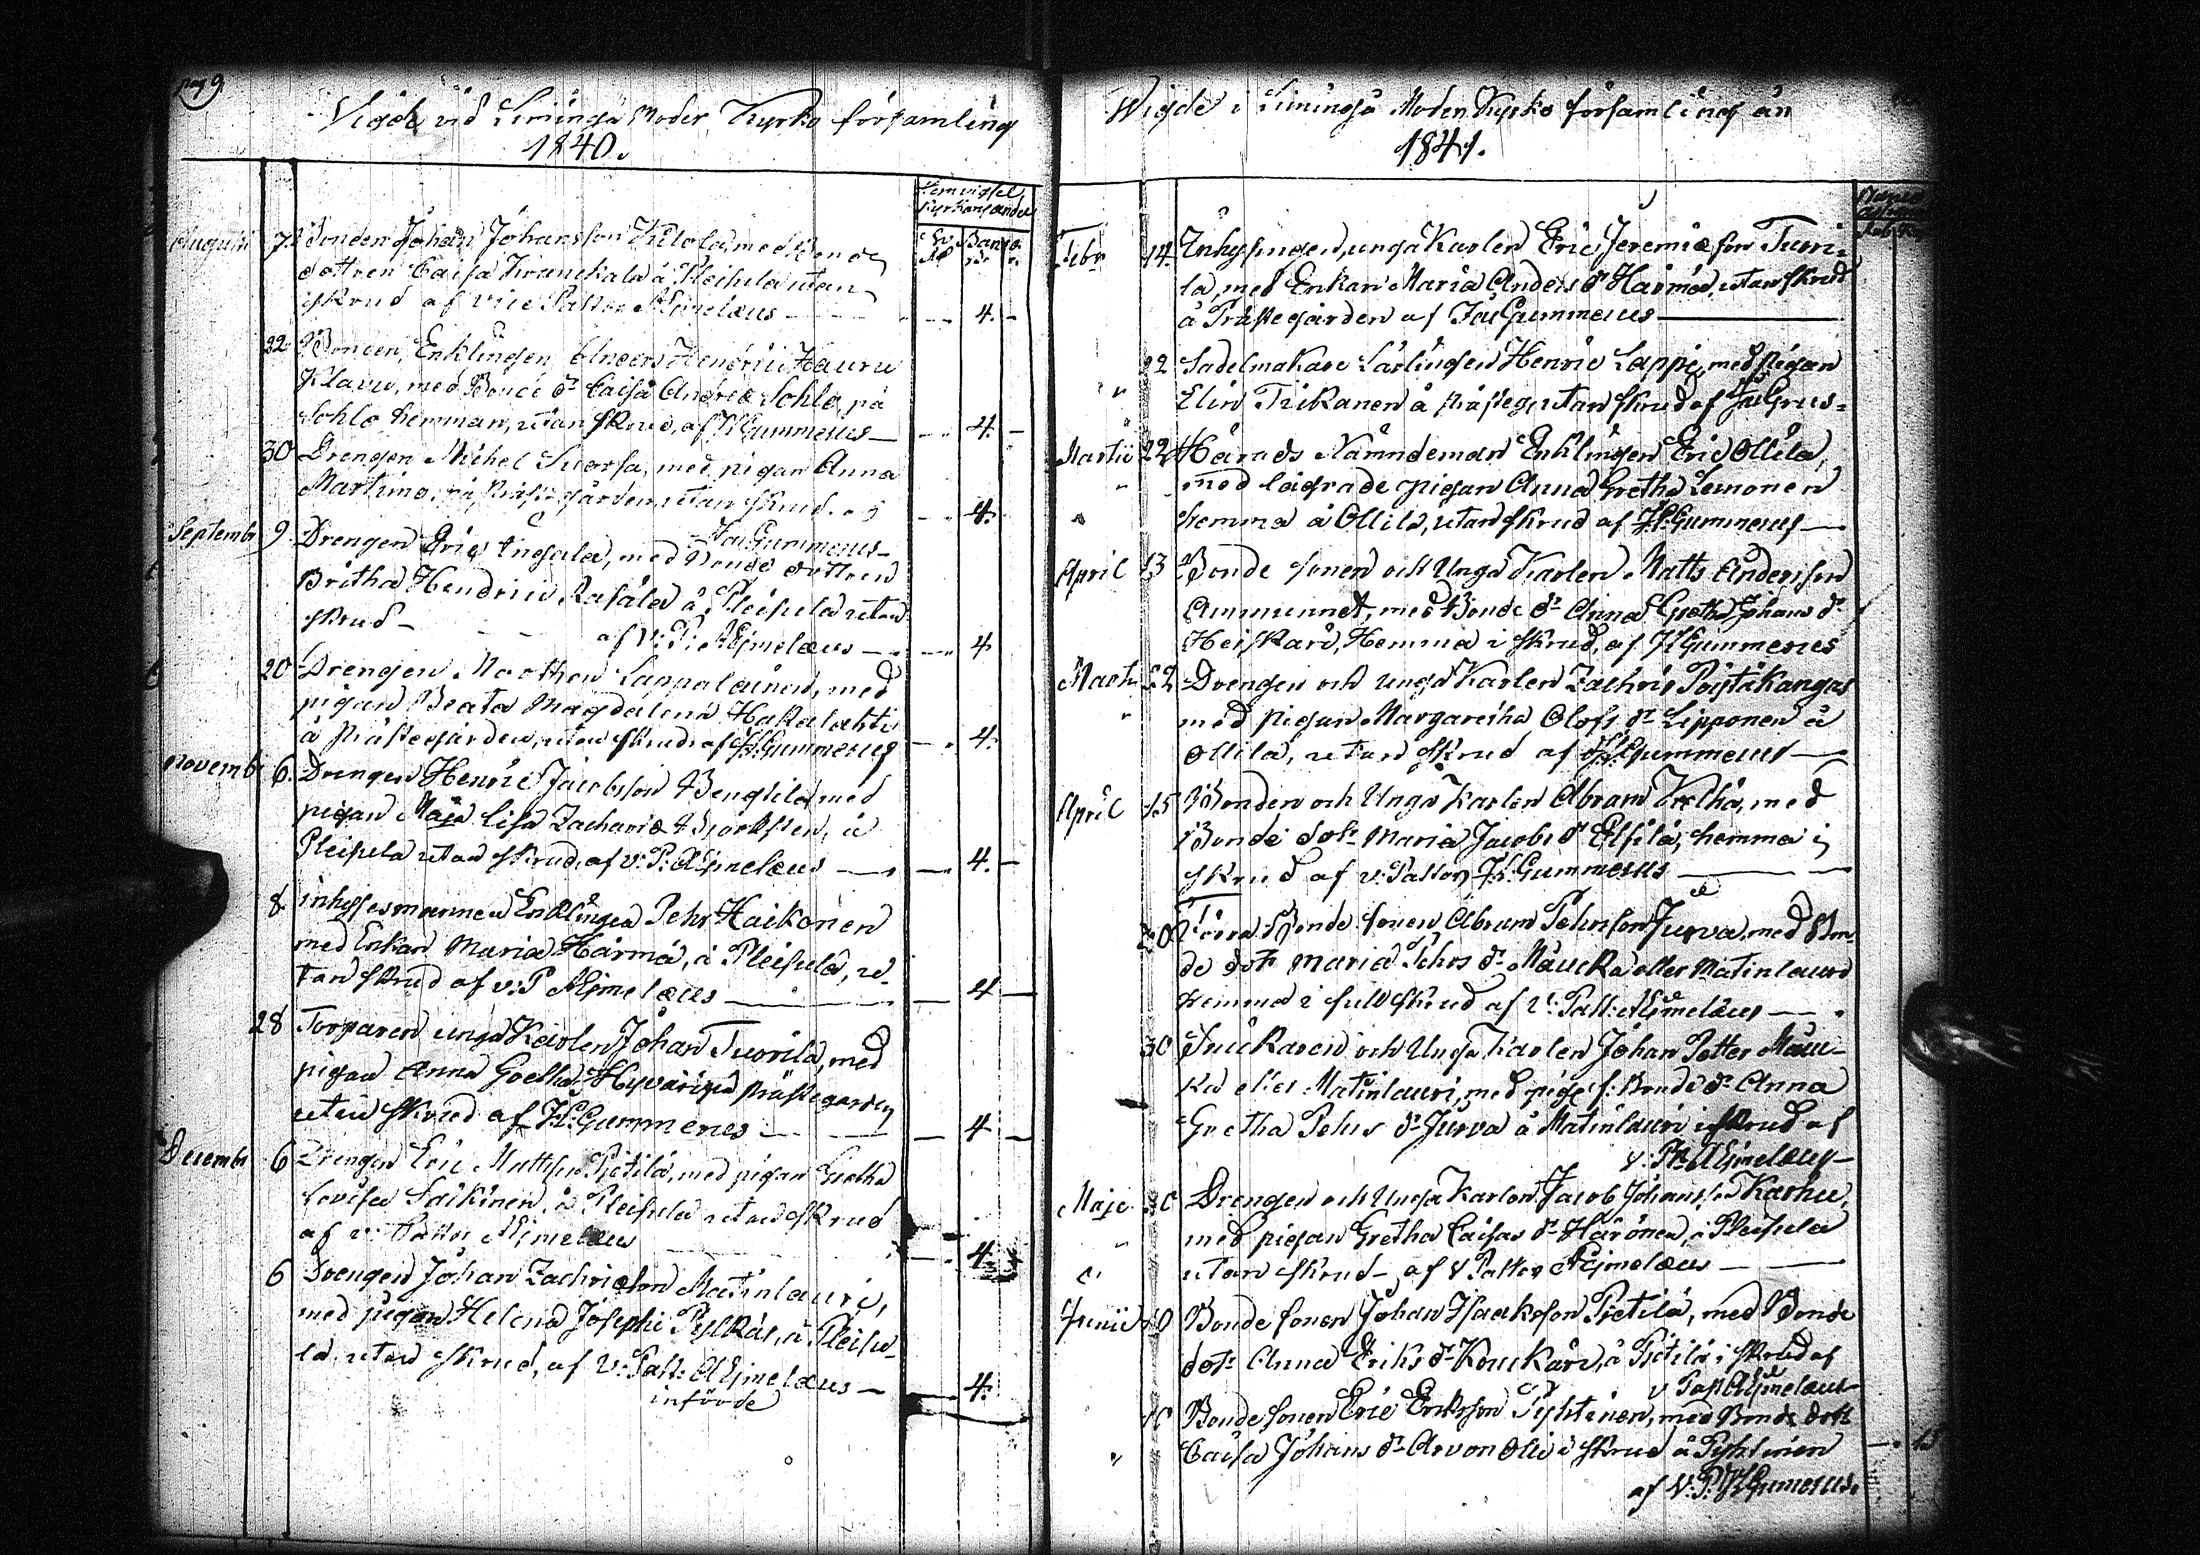 pag 9
Vigde vid Limingå Moder Kyrko församling
1840.
Hemvigsel
Kyrkans andel
Augusti 7. Bonden Johan Johansson med Bonde
dottren Caisa Krunckala å Pleisula utan
skrud af Vice Pastor Aljmelæus — 4. —
22 Bonden, Enklingen Anders Henrici Hauru
Klavu, med Bonde dr Caisa Andreæ Sohlo, på
Sohlo hemman, utan skrud, af Gummerus — 4. —
30 Drengen Michel Suorsa, med pigan Anna
Martimo, på Prästegården, utan skrud. af
Gummerus — 4.
Septembr 9. Drengen Eric Ängala, med Bonde dottren
Britha Henrici Rasala å Pleisula utan
skrud — af V: P: Aljmelæus — 4
20 Drengen Marthen Lappalainen, med
pigan Beata Magdalena Hakalahti
å Prästegården, utan skrud af Gummerus — 4.
Novembr 6. Drengen Henric Jacobsson Bengtila med
pigan Maja Lisa Zachariæ Björksten, å
Pleisula utan skrud, af v: P: Aljmelæus — 4. —
8. inhysesmannen Enklingen Pehr Haikonen
med Enkan Maria Härmä, å Pleisula, u-
tan skrud af v: P Aljmelæus — 4 —
28 Torparen unga Karlen Johan Tuorila, med
pigan Anna Greetha Hyväri på Prästegården
utan skrud af Gummerus — 4 —
Decembr 6 Drengen Eric Mattsson Pietilä, med pigan Gretha
Lovisa Saikinen, å Pleisula utan skrud
af v: Pastor Aljmelæus — 4.
6 Drengen Johan Zachriæson Matinlauri,
med pigan Helena Josephi Pylkäs, å Pleisu-
la, utan skrud, af V: Past: Aljmelæus — 4.
införde
Wigde i Limingå Moder Kyrko församling år
1841.
Febr 14. Inhysingen, unga Karlen Eric Jeremiæson Tuori-
la, med Enkan Maria Anders dr Härmä, utan skrud
å Prästegården af Jac Gummerus —
22 Sadelmakare Lärlingen Henric Lappi, med pigan
Elin Tikanen å Prästeg, utan skrud af
Martii 22 Härads Nämndeman Enklingen Eric Ollila,
med lägrade pigan Anna Gretha Lemonen
hemma å Ollila, utan skrud af Gummerus —
April 13 Bonde sonen och Unga Karlen Matts Andersson
Ammunnet, med Bonde dr Anna Gretha Johans dr
Heiskari, Hemma i skrud, af Gummerus
Martii 22 Drengen och unga Karlen Zachris Pöytäkangas
med pigan Margaretha Olofs dr Lipponen å
Ollila, utan skrud af Gummerus —
April 15 Bonden och Unga Karlen Abram med
Bonde dotr Maria Jacobs dr Elsilä, hemma i
skrud af v: Pastor Gummerus —
20 Förra Bonde sonen Abram Pehrsson Jurva, med Bon-
de dotr Maria Pehrs dr Maucka eller Matinlauri
hemma i full skrud af V: Past: Aljmelæus —
30 Snickaren och Unga Karlen Johan Petter Mau-
ka eller Matinlauri, med pige f: Bonde dr Anna
Gretha Pehrs dr Jurva å Matinlauri i skrud af
v: Pr: Aljmelæus —
Maje 30 Drengen och Unga Karlen Jacob Johansson Karhu,
med pigan Gretha Caisas dr Härönen, i Pleisula
utan skrud — af V Pastor Aljmelæus —
Junii 10 Bonde sonen Johan Isaaksson Pietilä, med Bonde
dotr Anna Eriks dr Kouckari, å Pietilä i skrud af
v Past Aljmelæus
10 Bonde sonen Eric Eriksson Pyhtinen, med Bonde dotr
Caisa Johans dr Arvon Olli i skrud å Pyhtinen
af V: P: Gummerus.